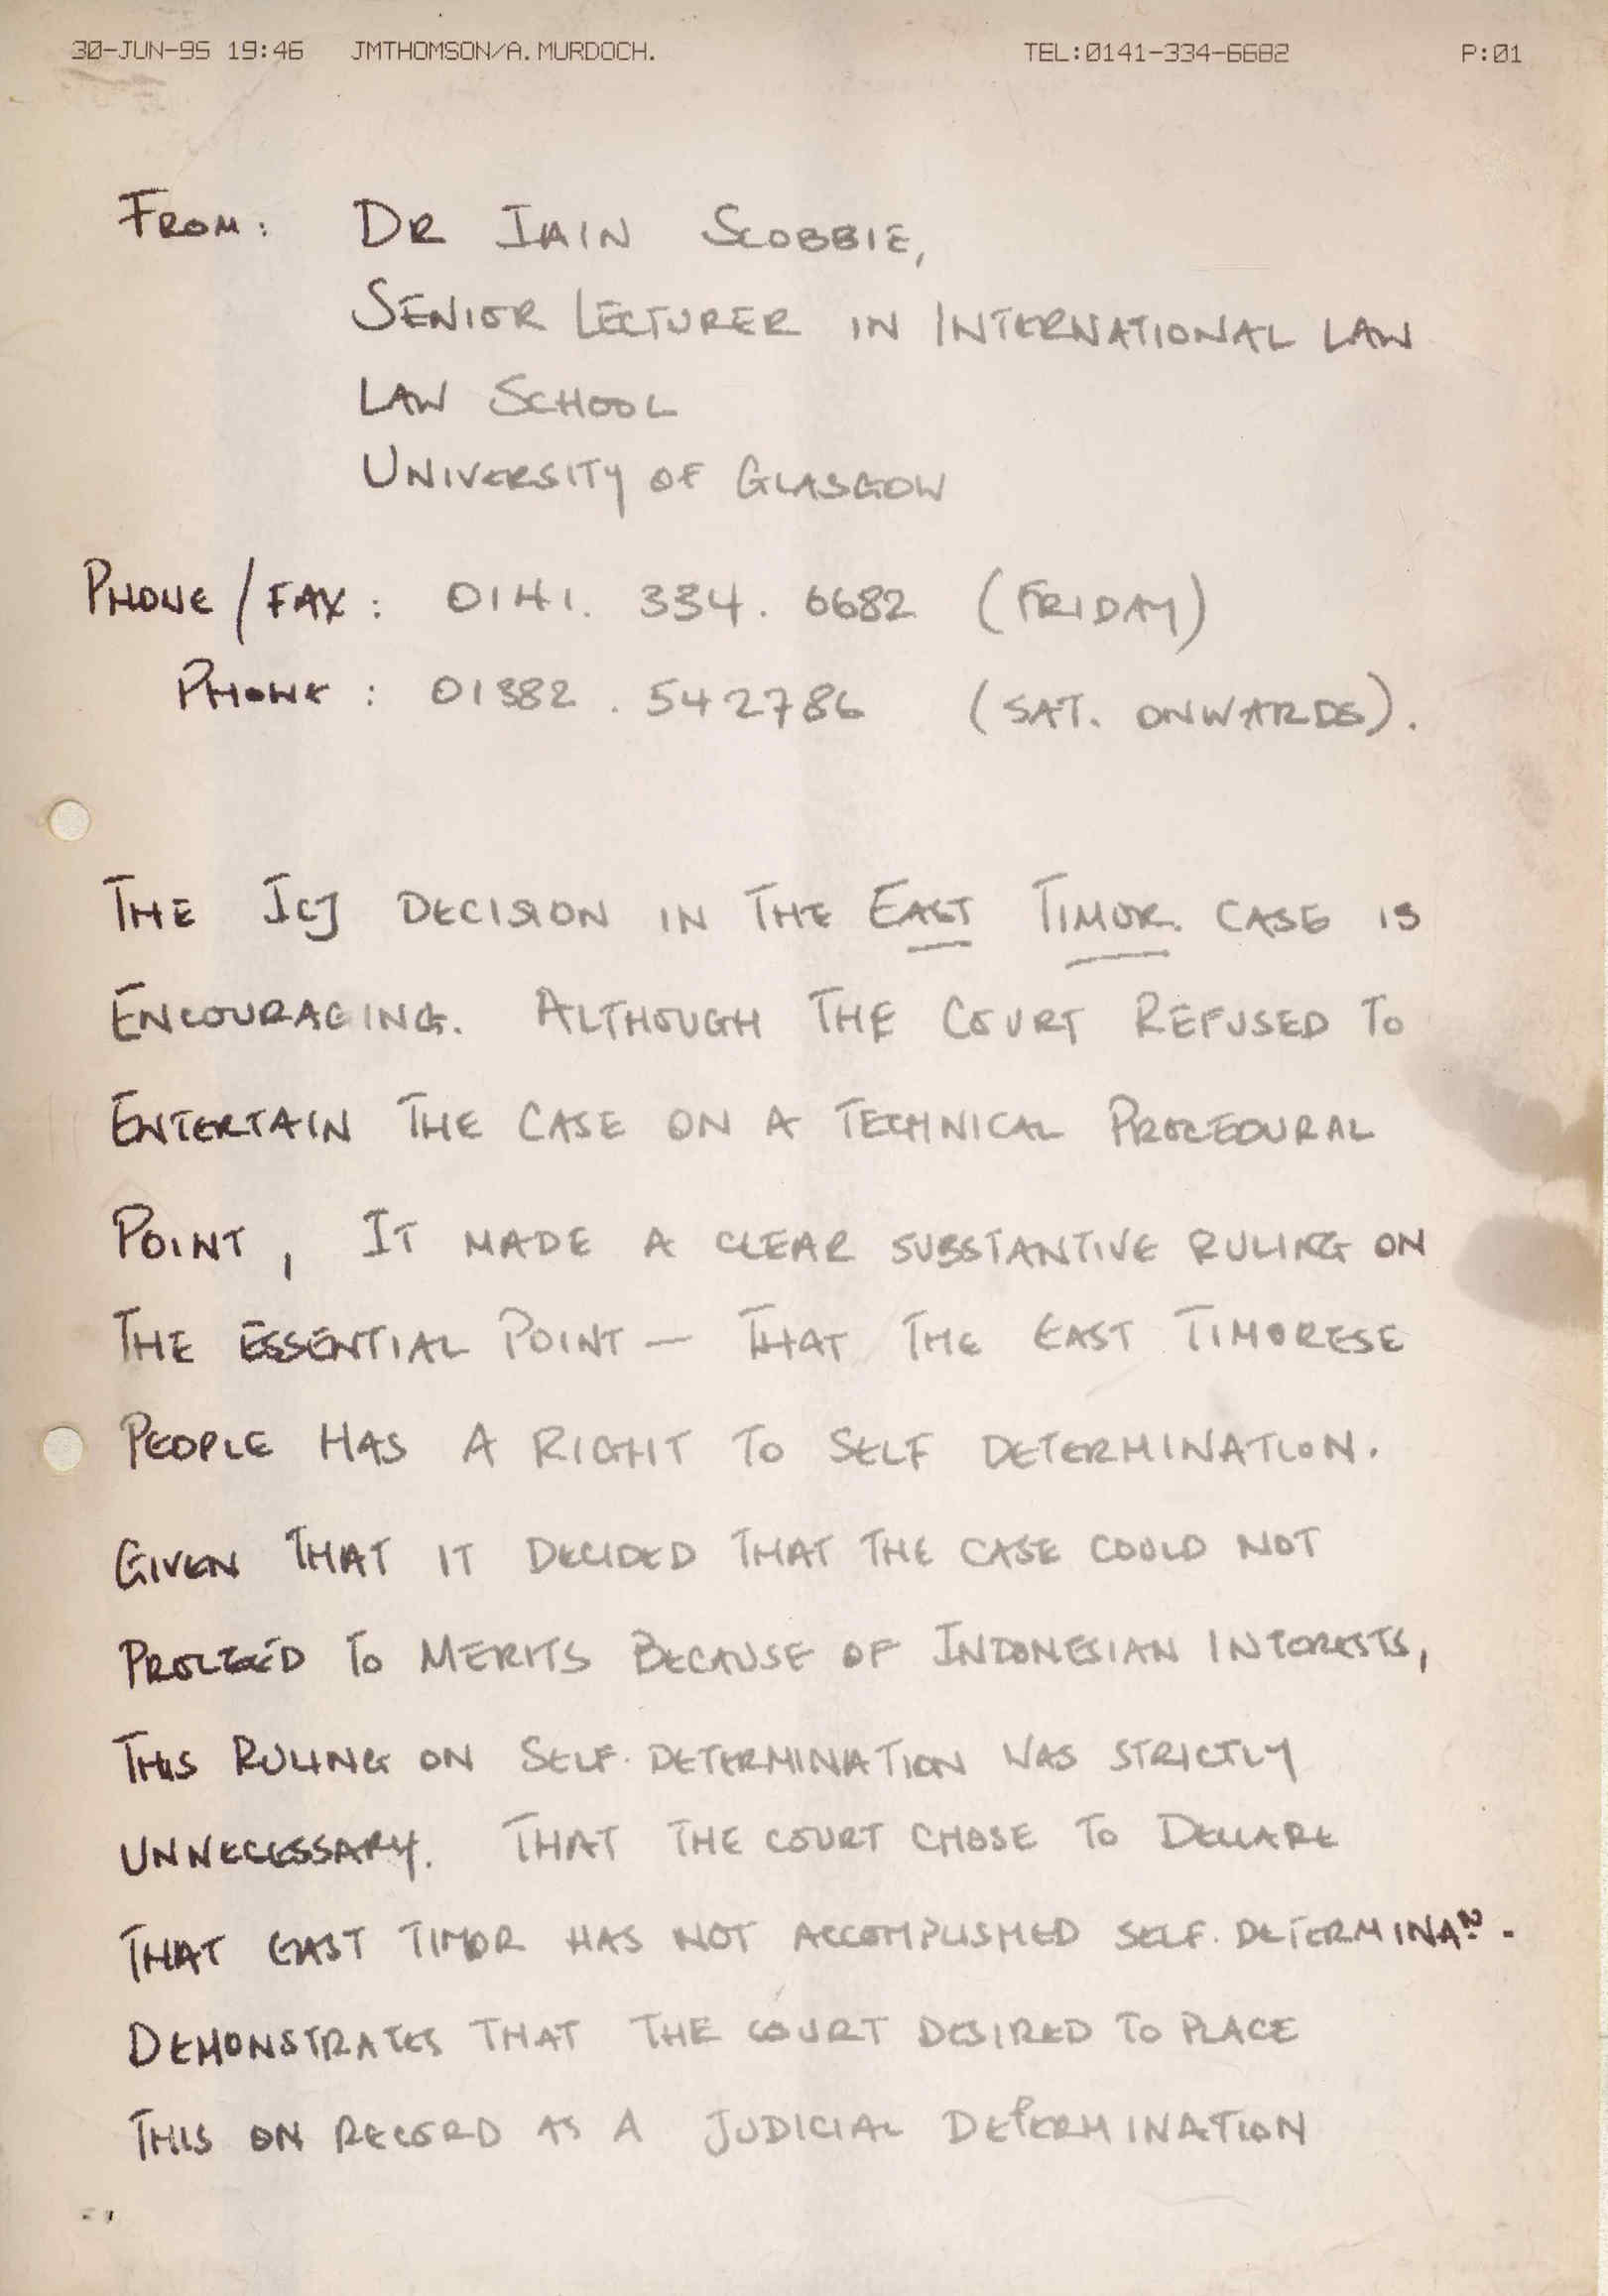 30-JUN-95 19:46 JMTHOMSON/A.MURDOCH. TEL:0141-334-6682 P:01
FROM: DR IAIN SCOBBIE,
SENIOR LECTURER IN INTERNATIONAL LAW
LAW SCHOOL
UNIVERSITY OF GLASGOW
PHONE/FAX: 0141. 334. 6682 (FRIDAY)
PHONE: 01382. 542786 (SAT. ONWARDS).
THE ICJ DECISION IN THE EAST TIMOR CASE IS
ENCOURAGING. ALTHOUGH THE COURT REFUSED TO
ENTERTAIN THE CASE ON A TECHNICAL PROCEDURAL
POINT, IT MADE A CLEAR SUBSTANTIVE RULING ON
THE ESSENTIAL POINT — THAT THE EAST TIMORESE
PEOPLE HAS A RIGHT TO SELF DETERMINATION.
GIVEN THAT IT DECIDED THAT THE CASE COULD NOT
PROCEED TO MERITS BECAUSE OF INDONESIAN INTERESTS,
THIS RULING ON SELF-DETERMINATION WAS STRICTLY
UNNECESSARY. THAT THE COURT CHOSE TO DECLARE
THAT EAST TIMOR HAS NOT ACCOMPLISHED SELF-DETERMINAN.
DEMONSTRATES THAT THE COURT DESIRED TO PLACE
THIS ON RECORD AS A JUDICIAL DETERMINATION